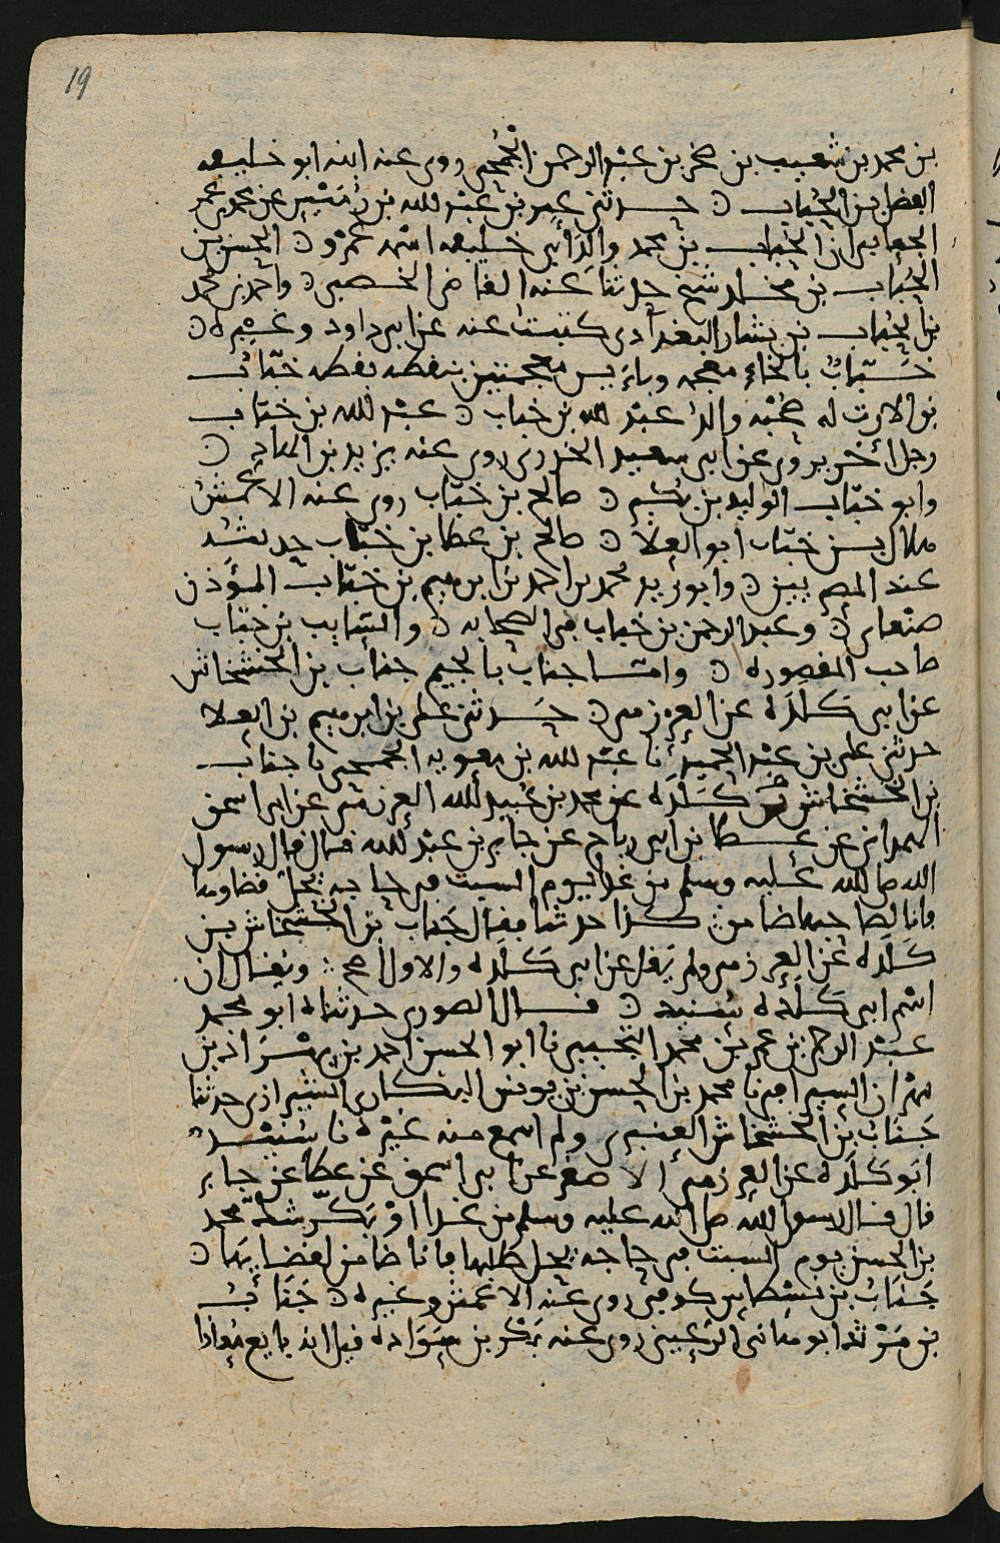 19
بن محمد بن شعيب بن صخر بن عبد الرحمن الجمحي روى عنه ابنه ابو خليفه
الفضل بن الحباب حدثني عبيد بن عبد الله بن عن محمد بن عمر
الجعابي ان الحباب بن محمد والد ابي خليفه اسمه عمرو الحسن بن
الحباب بن مخلد شيخ حدثنا عنه القاضي الخصيبي واحمد بن محمد
بن الحباب بن بشار البغدادي كتبت عنه عن ابي داود وغيره
خباب بالخاء معجمه وباءين معجمتين بنقطه نقطه خباب
بن الارت له صحبه والد عبد الله بن خباب عبد الله بن خباب
رجل اخر يروى عن ابي سعيد الخدري روى عنه يزيد بن الهاد
وابو خباب الوليد بن بكير صالح بن خباب روى عنه الاعمش
هلال بن خباب ابو العلا صالح بن عطا بن خباب حديثه
عند المصريين وابو زيد محمد بن احمد بن ابرهيم بن خباب المؤذن
صنعاني وعبد الرحمن بن خباب في الصحابه والسايب بن خباب
صاحب المقصوره واما جناب بالجيم جناب بن الخشخاش
عن ابي كلده عن العرزمي حدثني علي بن ابرهيم بن العلا
حدثني علي بن عبد الحميد نا عبد الله بن معويه الجمحي نا جناب
بن الخشخاش عن كلده عن محمد بن عبيد الله العرزمي عن ابي اسحق
الهمداني عن عطا بن ابي رباح عن جابر بن عبد الله قال قال رسول
الله صلى الله عليه وسلم من غدا يوم السبت في حاجه يحل قضاوها
فانا لصاحبها ضامن كذا حدثنا فقال جناب بن الخشخاش بن
كلده عن العرزمي ولم يقل عن ابي كلده والاول صح ويقال ان
اسم ابي كلده شنيد قال الصوري حدثناه ابو محمد
عبد الرحمن بن عمر بن محمد التجيبي نا ابو الحسن احمد بن بهزاذ بن
مهران السيرافي نا محمد بن الحسن بن يونس الهنكاري الشيرازي حدثنا
جناب بن الخشخاش العنبري ولم اسمع منه غيره نا شنيد
ابو كلده عن العرزمي الاصغر عن ابي اسحق عن عطا عن جابر
قال قال رسول الله صلى الله عليه وسلم من غدا او بكر شك محمد
بن الحسن يوم السبت في حاجه يحل طلبها فانا ضامن لقضايها
جناب بن نسطاس كوفي روى عنه الاعمش وغيره جناب
بن مرثد ابو هاني الرعيني روى عنه بكر بن سواده قيل انه بايع معاذا